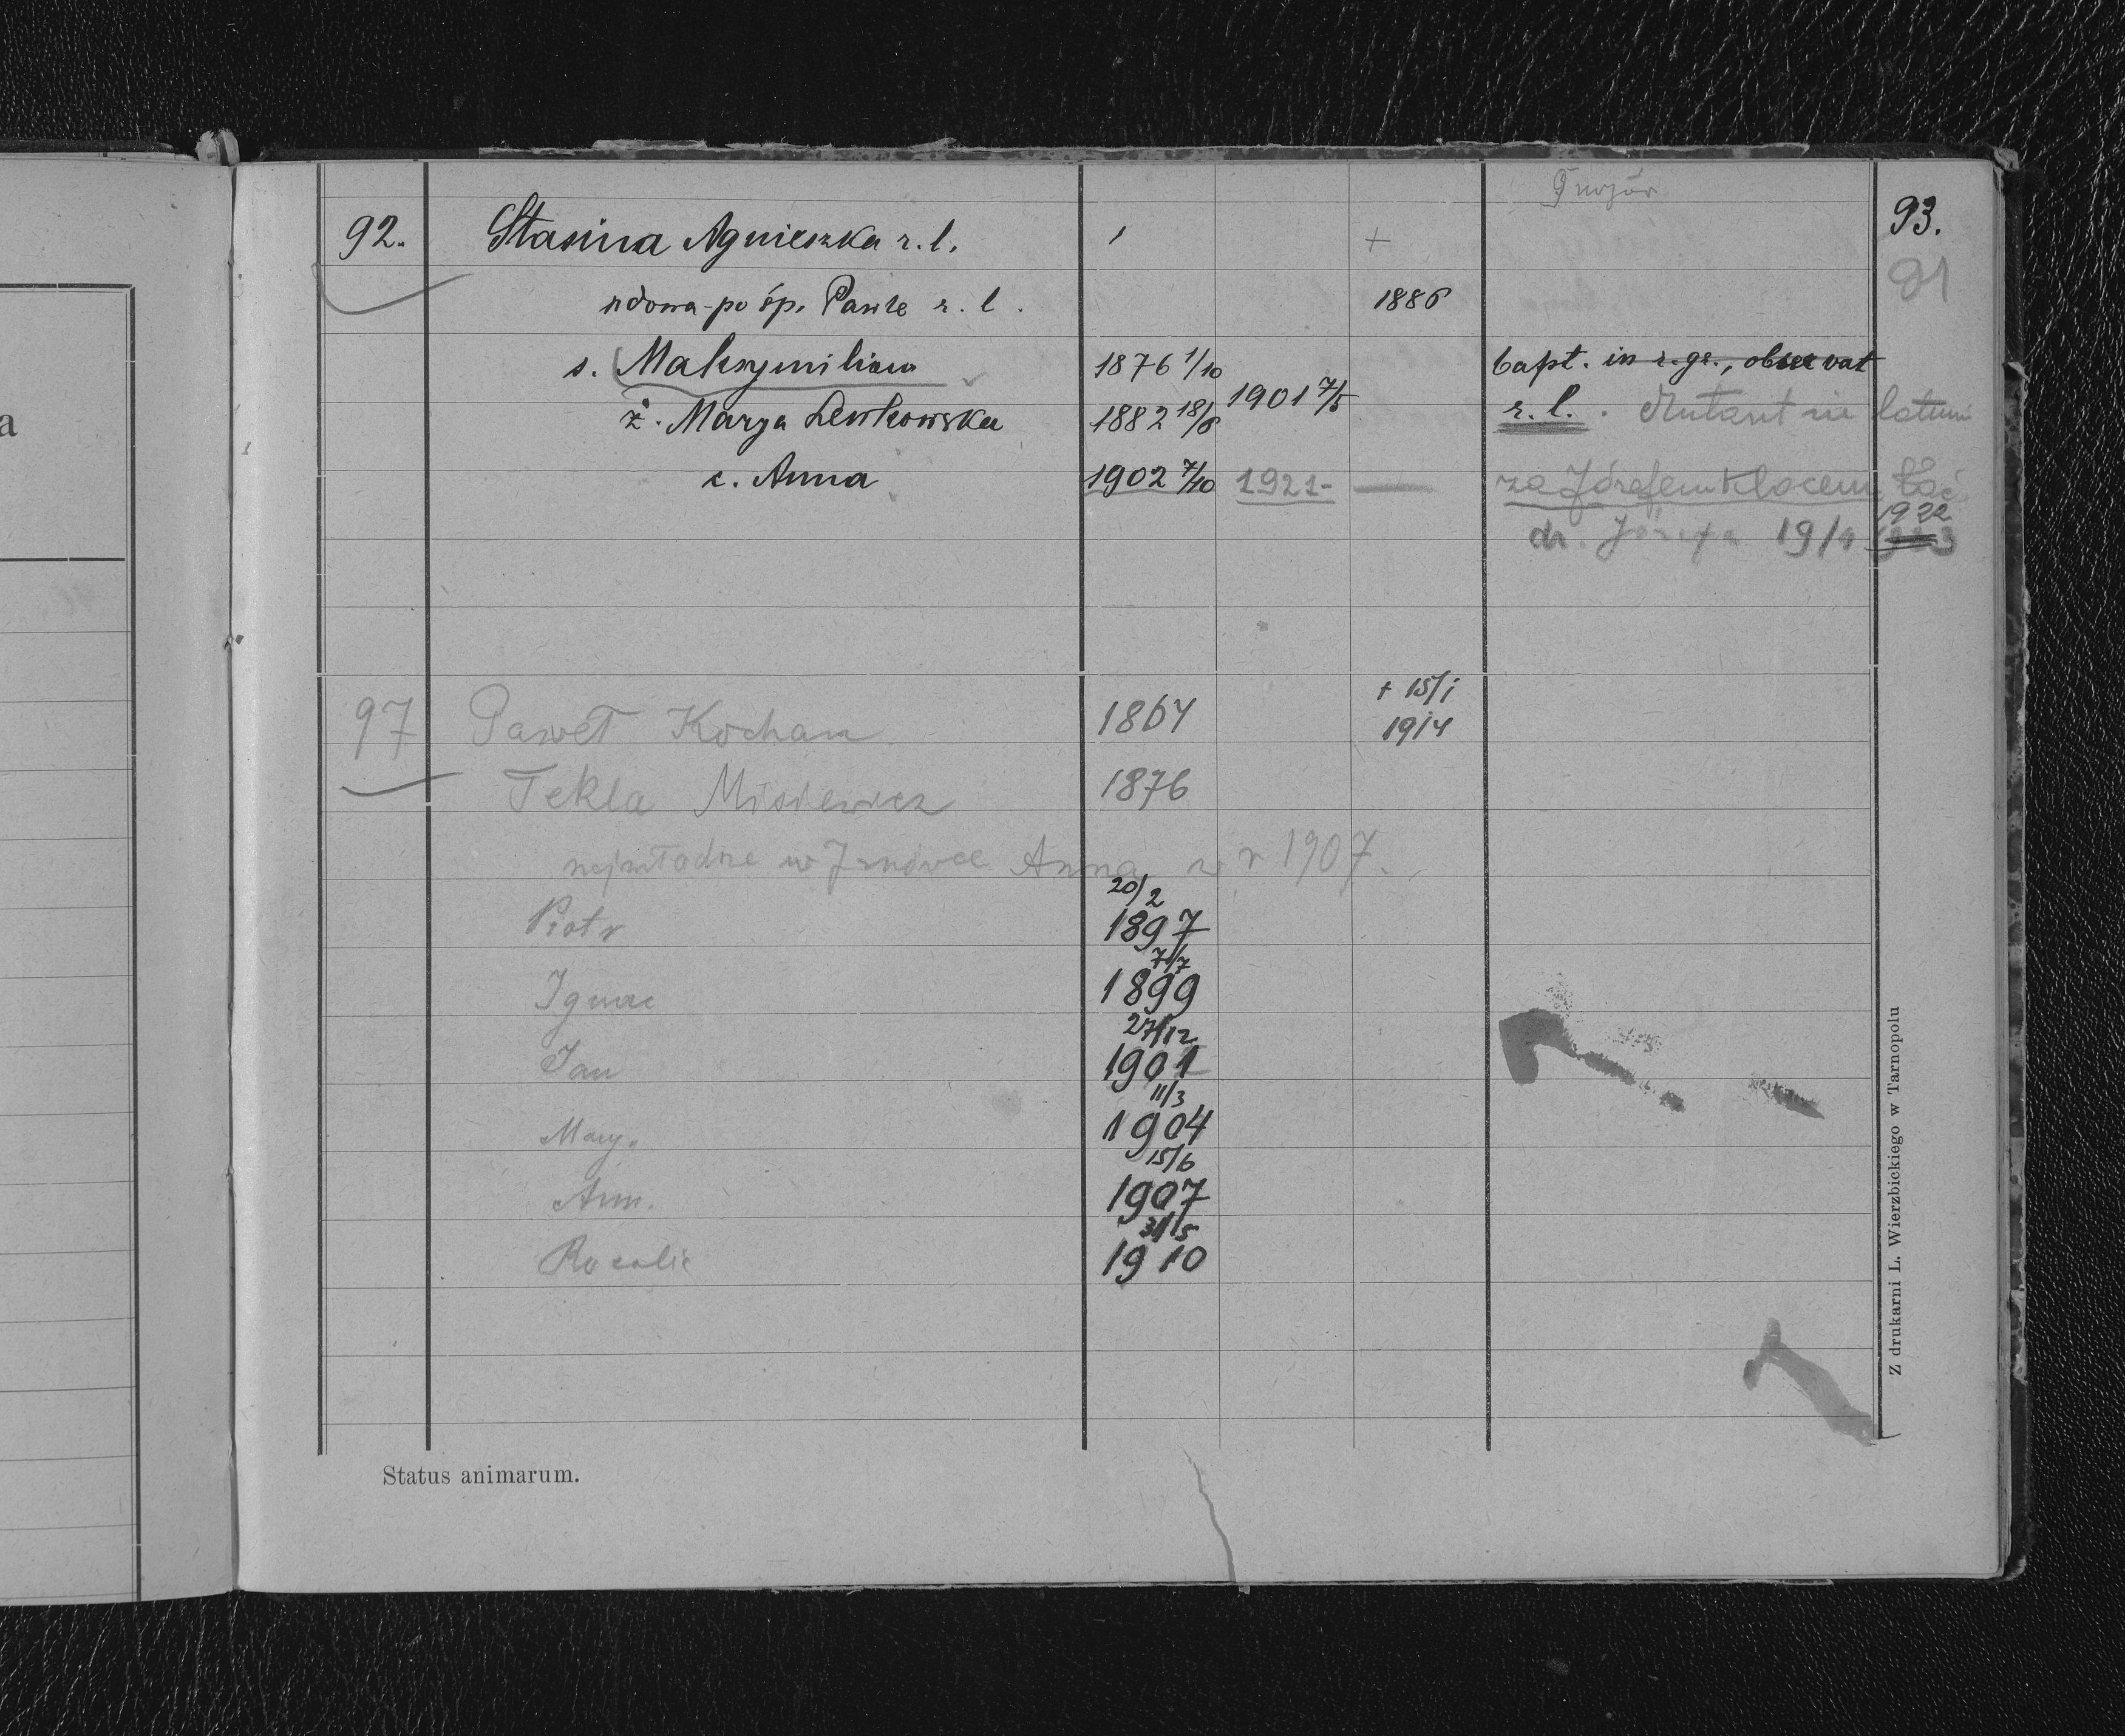 93.
91
92. Stasina Agnieszka r. l. +
wdowa po śp. Pawle r. l. 1886
s. Maksymilian 1876 1/10 bapt. in r. gr., observat
ż. Marya Lewkowska 1882 18/6 1901 7/5 r. l. Mutant in latum
c. Anna 1902 7/10 1921- za Józefem Klocem
dz. Józefa 19/4 1922
97 Paweł Kochan 1864 + 15/1 1914
Tekla Misiewicz 1876
najmłodsze w Anna w r 1907.
Piotr 20/2 1897
Ignac 7/7 1899
Jan 27/12 1901
Mary. 11/3 1904
Ann. 15/6 1907
Rozalie 31/5 1910
Z drukarni L. Wierzbickiego w Tarnopolu
Status animarum.
a